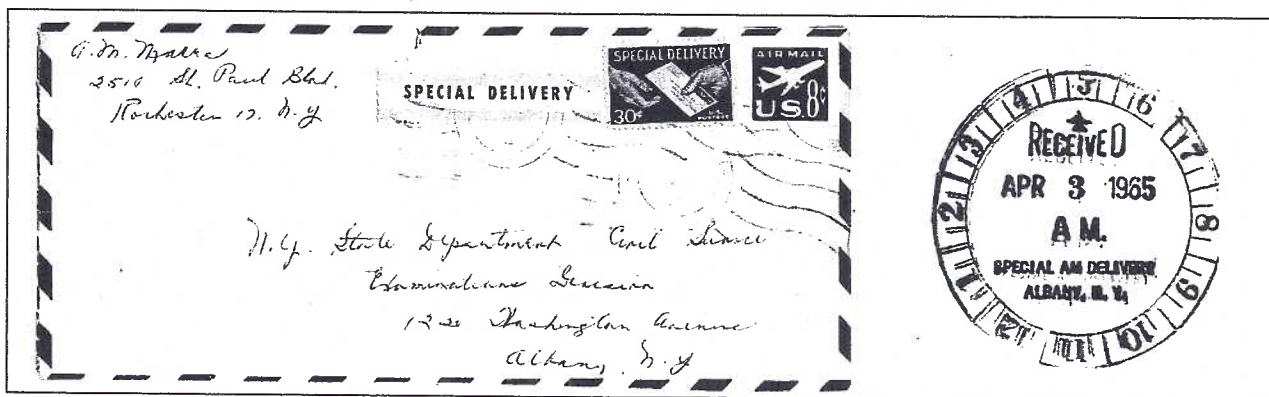 A. M. Marra
2510 St. Paul Blvd.
Rochester 17. N.Y
SPECIAL DELIVERY
SPECIAL DELIVERY
30¢
U.S. POSTAGE
AIR MAIL
U.S. 8¢
N.Y. State Department Civil Service
Examinations Division
1220 Washington Avenue
Albany, N.Y
1 2 3 4 5 6 7 8 9 10 11 12
RECEIVED
APR 3 1965
A M.
SPECIAL AM DELIVERY
ALBANY, N. Y.